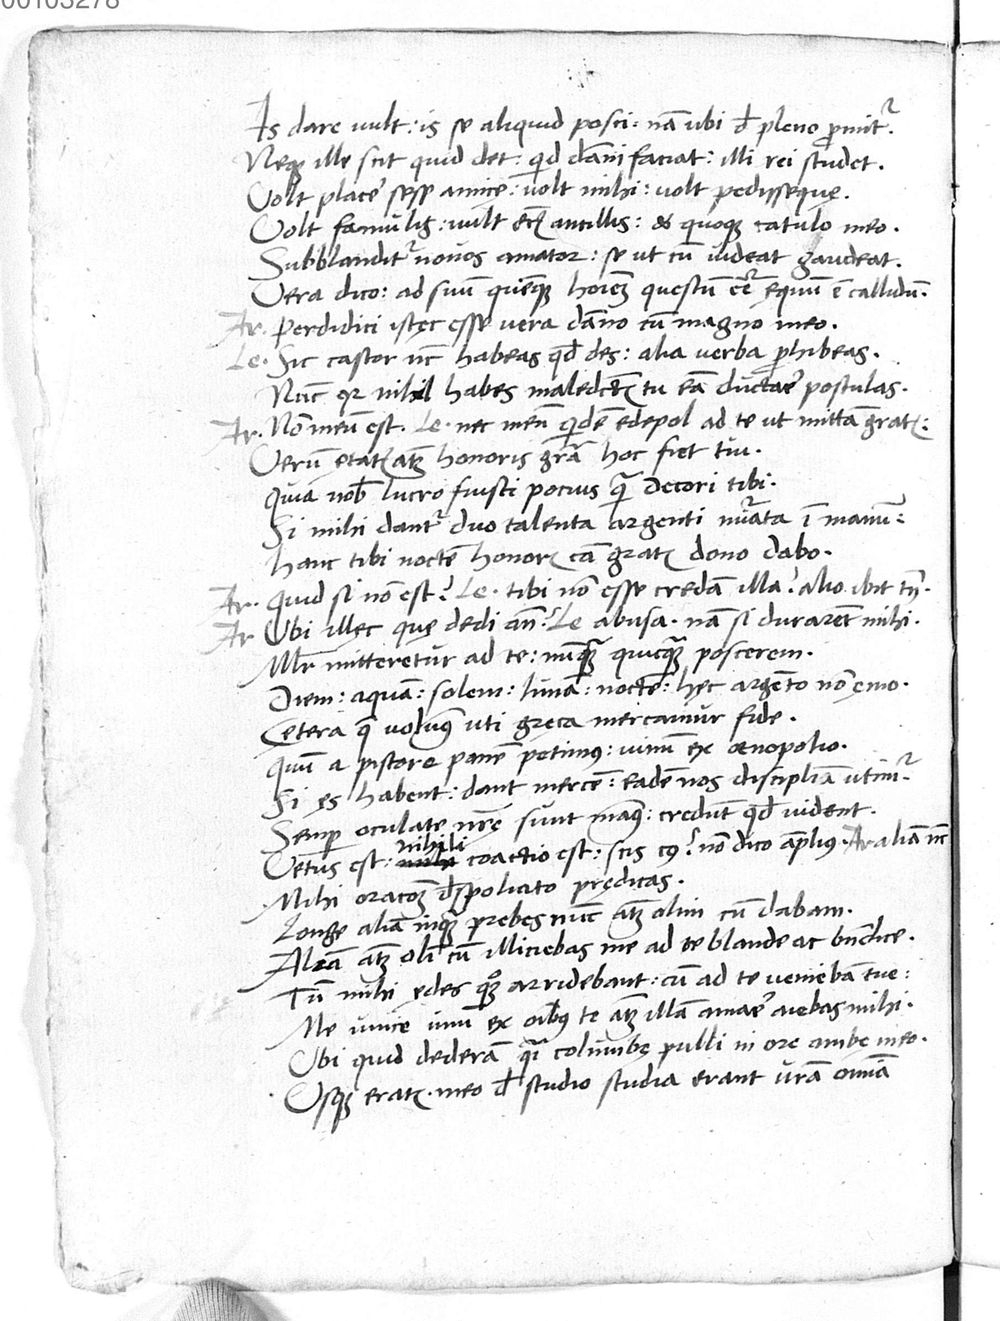 00103278
Is dare uult: is se aliquid posci: nā ubi đ pleno ꝓmitᷣ.
Neqꝫ ille scit quid det: qd dāni faciat: illi rei studet.
Volt placeᷣ sese amice: uolt mihi: uolt pedisseque.
Volt famulis: uult etꝫ ancillis: & quoqꝫ catulo meo.
Subblanditᷣ nouos amator: se ut cū uideat gaudeat.
Vera dico: ad suū quēqꝫ hoīem questū eēᷣ equū ē callidum.
Ar. Perdidici istęc esse uera dāno cū magno meo.
Le. Sic castor nc̄ habeas qđ des: alia uerba ꝓhibeas.
Nūc qꝛ nihil habes maledictꝫ tu eā ductaeᷣ postulas.
Ar. Nō meū est. Le. nec meū qdē edepol ad te ut mittā gratꝫ:
Verū etatꝫ atqꝫ honoris grā hoc fiet tui.
Quia nob lucro fuisti pocius qꝫ decori tibi.
Si mihi dantᷣ duo talenta argenti nūata ī manū:
Hanc tibi noctē honorꝫ cā gratꝫ dono dabo.
Ar. Quid si nō est? Le. tibi nō esse credā illa? alio ibit tn̄.
Ar Vbi illęc quę dedi an̄? Le abusa. nā si durarēt mihi.
Mlr mitteretur ad te: nūqꝫ quicqꝫ poscerem.
Diem: aquā: solem: lunā: noctē: hęc argēto nō emo.
Cętera q̄ uolumꝰ uti gręca mercamur fide.
Quū a pistore panē petimꝰ: uinū ex œnopolio.
Si es habent: dant mercē: eadē nos discipliā utimᷣ.
Semp oculate nrę sunt manꝰ: credūt qđ uident.
Vetus est: nihili coactio est: scis cꝰ? nō dico āpliꝰ. Ar aliā nc̄
Mihi oratoꝫ đspoliato prędicas.
Longe aliā inqꝫ prebes nūc atqꝫ olim cū dabam.
Aliā atqꝫ oli cū illiciebas me ad te blande ac bn̄dice.
Tū mihi ędes quoqꝫ arridebant: cū ad te ueniebā tue:
Me unice unū ex oībꝰ te atqꝫ illā amaeᷣ aiebas mihi.
Vbi quid dederā q̄ columbę pulli in ore ambe meo.
Vsqꝫ eratꝫ. meo đ studio studia erant ur̄a omīa